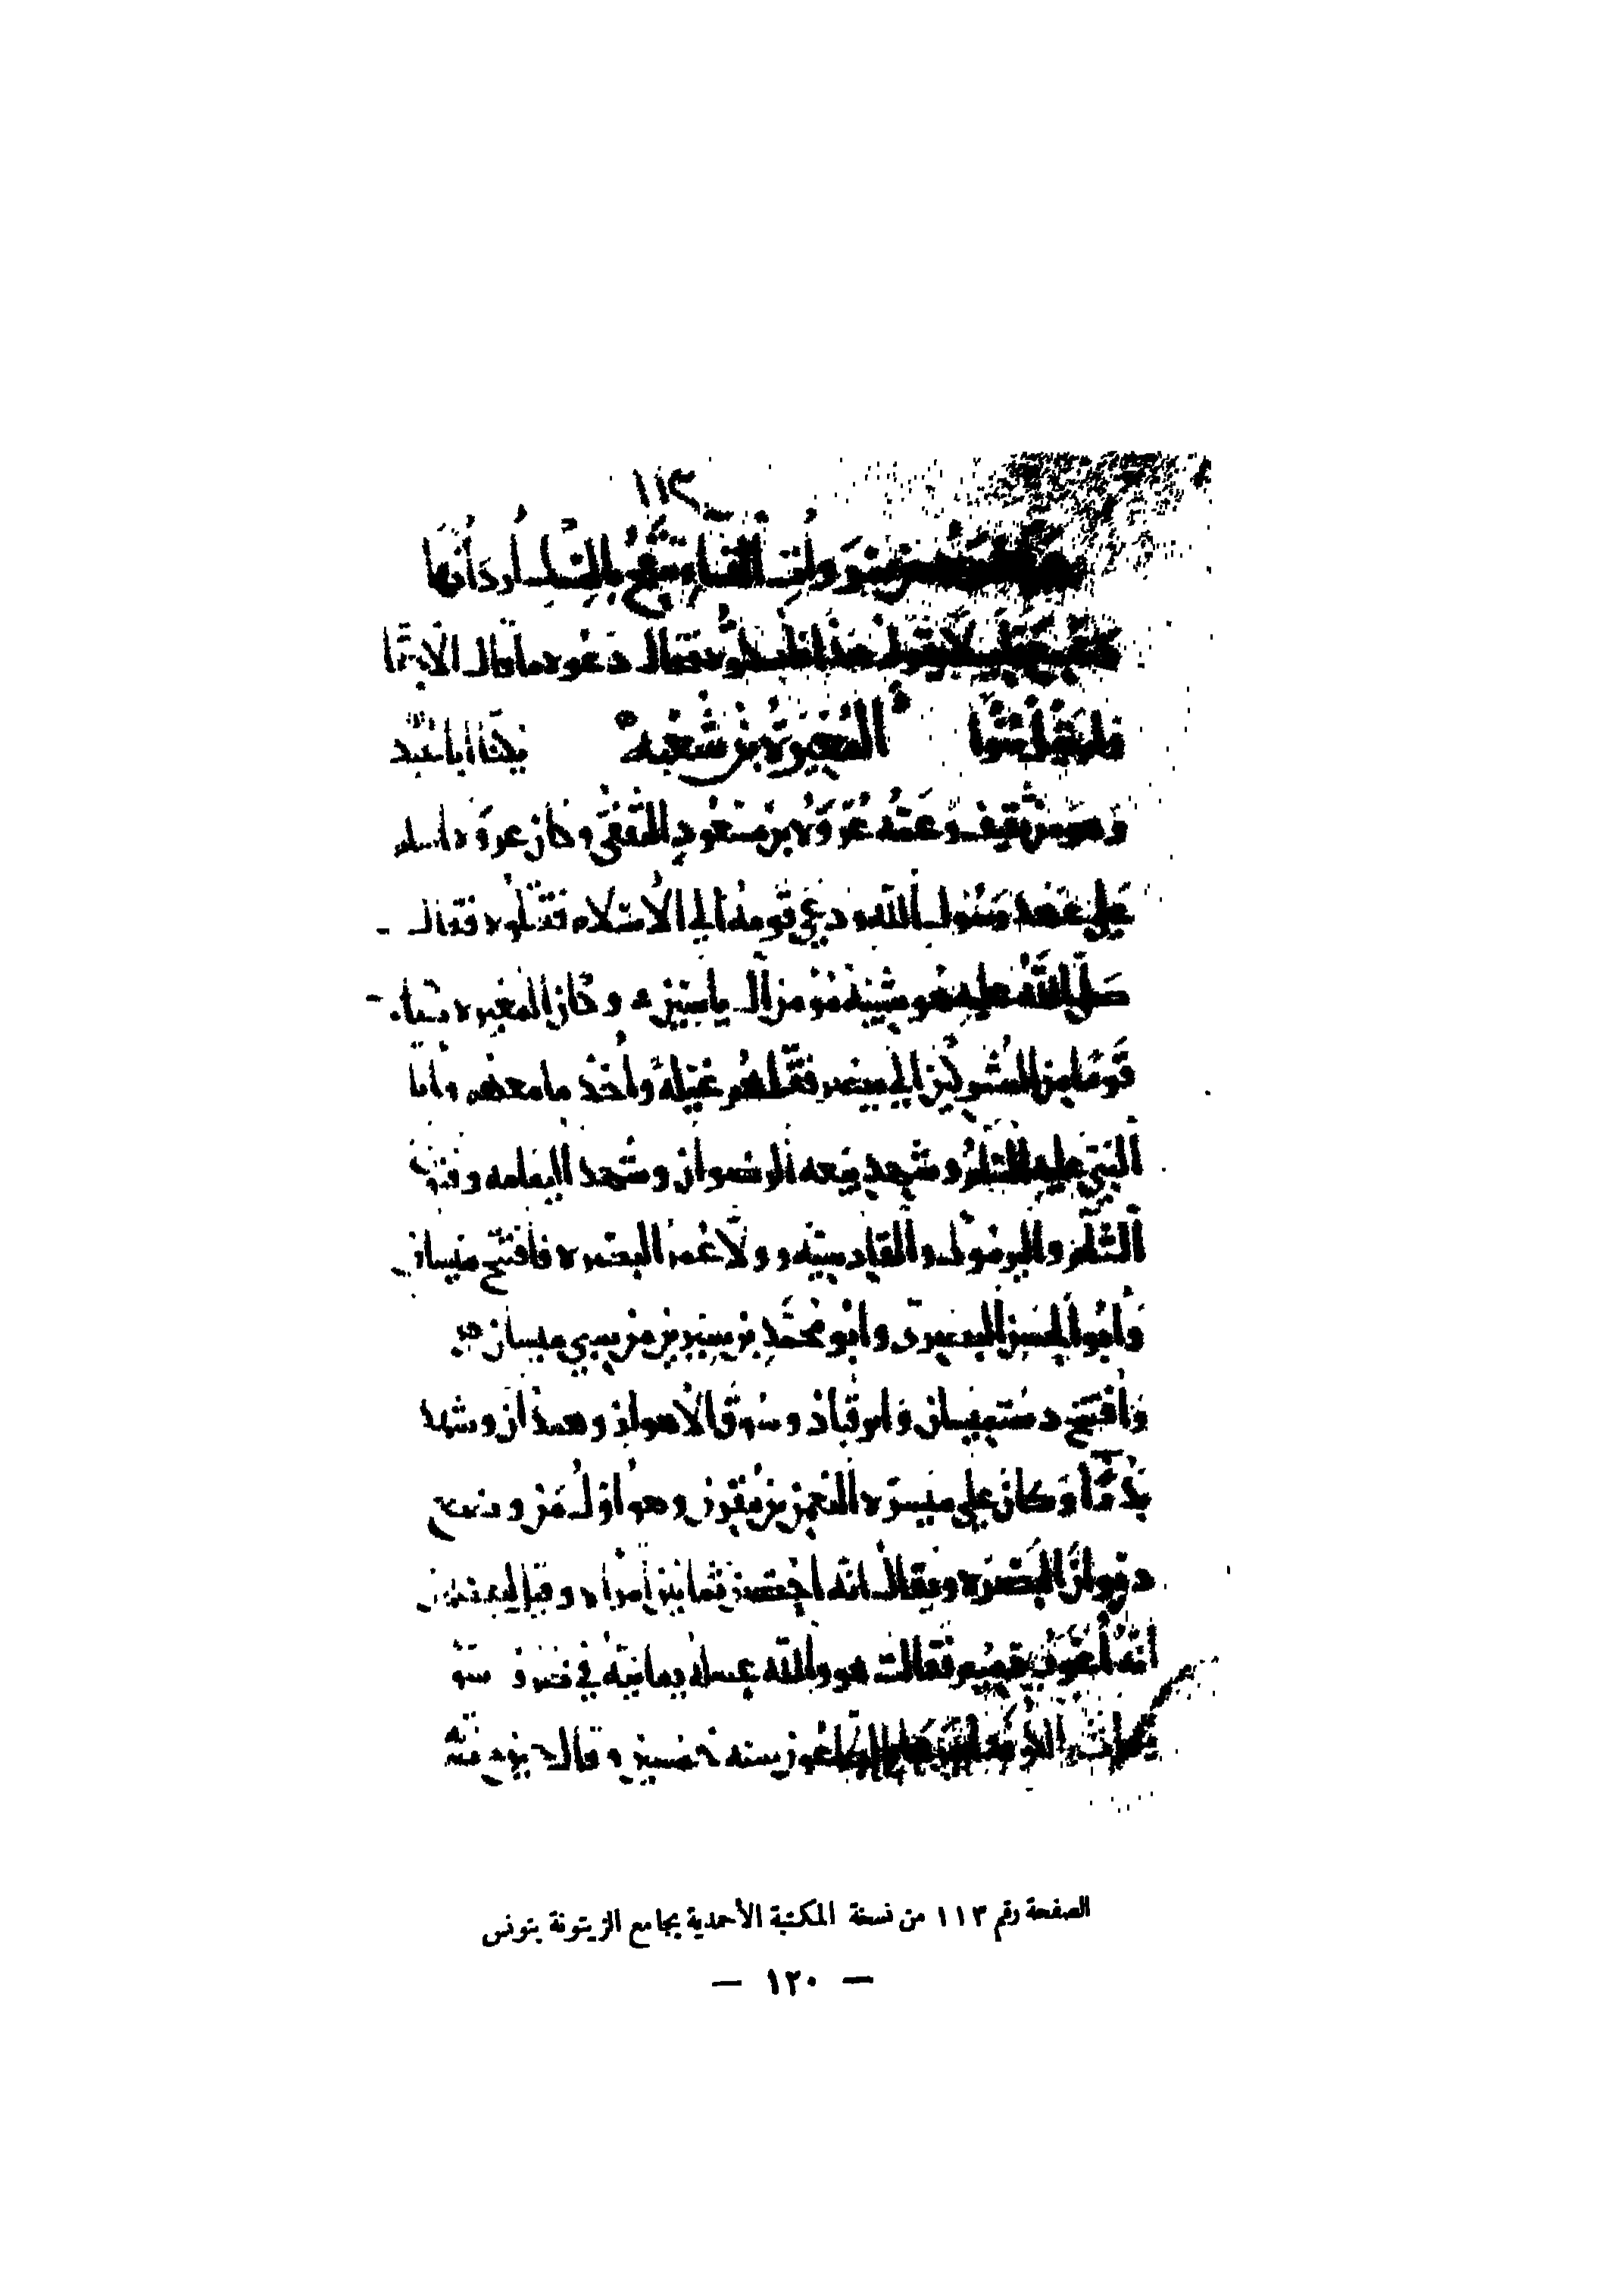 ١١٣
وأنت ألقاء تنفح بالنيل أردانها
لا يقول هذا فقال دعوه ما قال الا
فليقل ما شا المُغيرَة بن شُعبه يكنا ابا عبد
وَهو من ثقيف وَعمّه عُرْوَة بن مَسْعُودٍ الثقفي وكان عروَه اسلم
عَلى عَهد رَسُول اللّه ودعى قومه الى الاسْلام فقتلوه فقال
صَلَّى اللَّهُ عليه هو شبيه مؤمن آل ياسين وكان المغيره
قَومًا من المشركين الى مصر فقتلهم غيلةً وأخذ ما معهم وأتا
النبيّ عليه السَّلم وشهد بيعه الرضوان وشهد اليمامه وفتوح
الشَّام واليرموك والقادسيَّه وولّاه عُمر البصره فافتتح ميسان
وَأبُو الحسن البصري وأبو محمَّد بن سيرين من سبي ميسان
وَافتتح دستميسان وَابرقباذ وسُوق الأهواز وهمذان وشهد
نِهاوَنْد وَكان على ميسرَة النعمن بن مقرن وهو اوّل مَن وضع
ديوان البَصْرَه ويقال انّه احْصن ثمانين امرأه وقيل لبعضهن
انّه أعْوَرُ دميم فقالت هو واللّه عسلة يمانيَّة في ظرف سَوْ
وَمات بالكوفة بالطاعون سنه خمسين وقال حين دفنه
الصفحة رقم ١١٣ من نسخة المكتبة الأحمدية بجامع الزيتونة بتونس
— ١٢٠ —